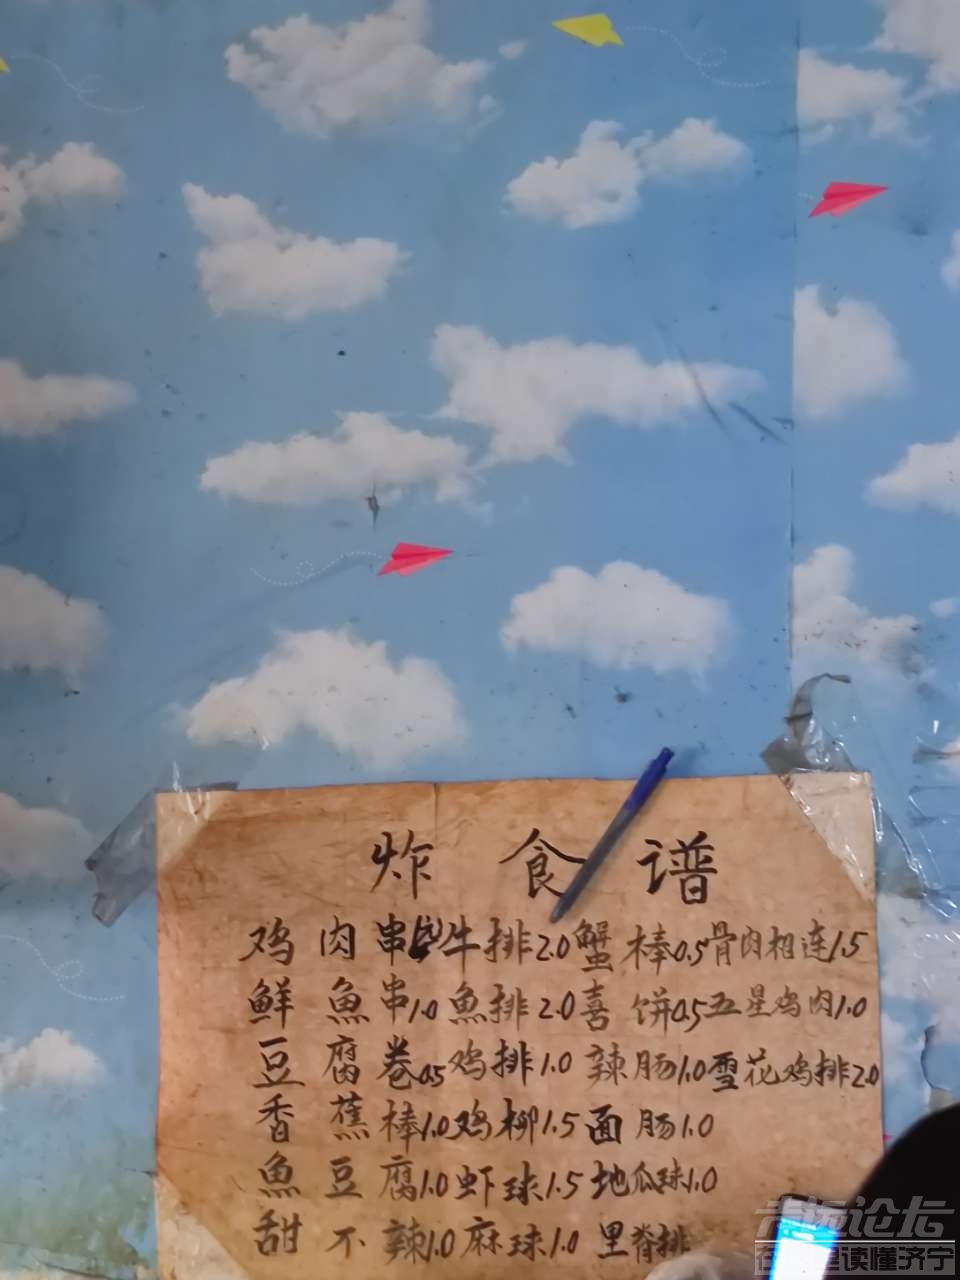 炸食谱
鸡肉串 牛排2.0蟹棒0.5骨肉相连1.5
鲜魚串1.0魚排2.0喜饼0.5五星鸡肉1.0
豆腐卷0.5鸡排1.0辣肠1.0雪花鸡排2.0
香蕉棒1.0鸡柳1.5面肠1.0
魚豆腐1.0虾球1.5地瓜球1.0
甜不辣1.0麻球1.0里脊排
论坛
读懂济宁